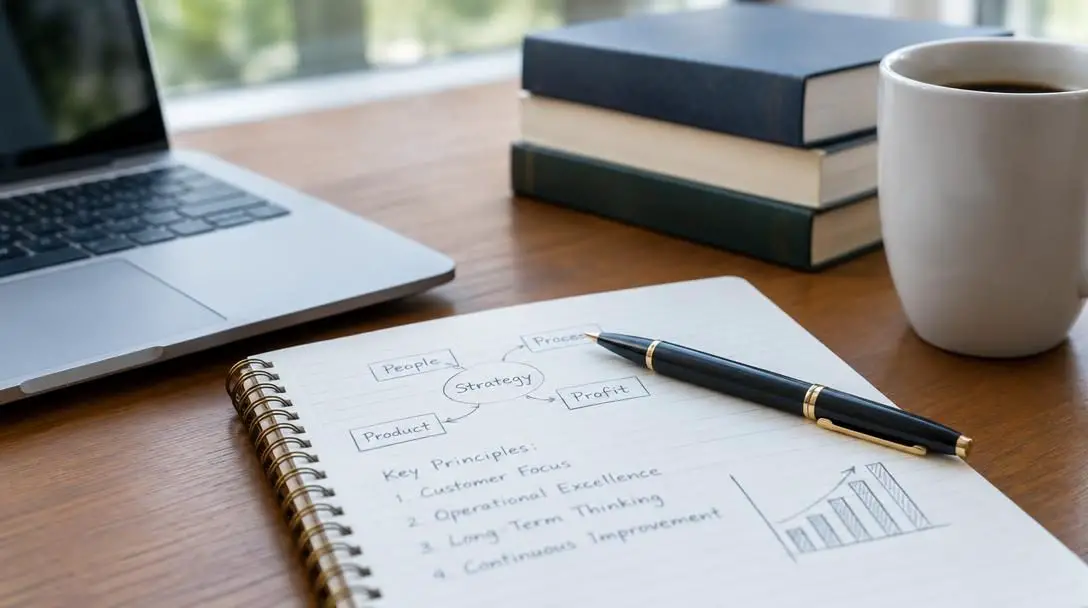 People
Process
Strategy
Profit
Product
Key Principles:
1. Customer Focus
2. Operational Excellence
3. Long Term Thinking
4. Continuous Improvement